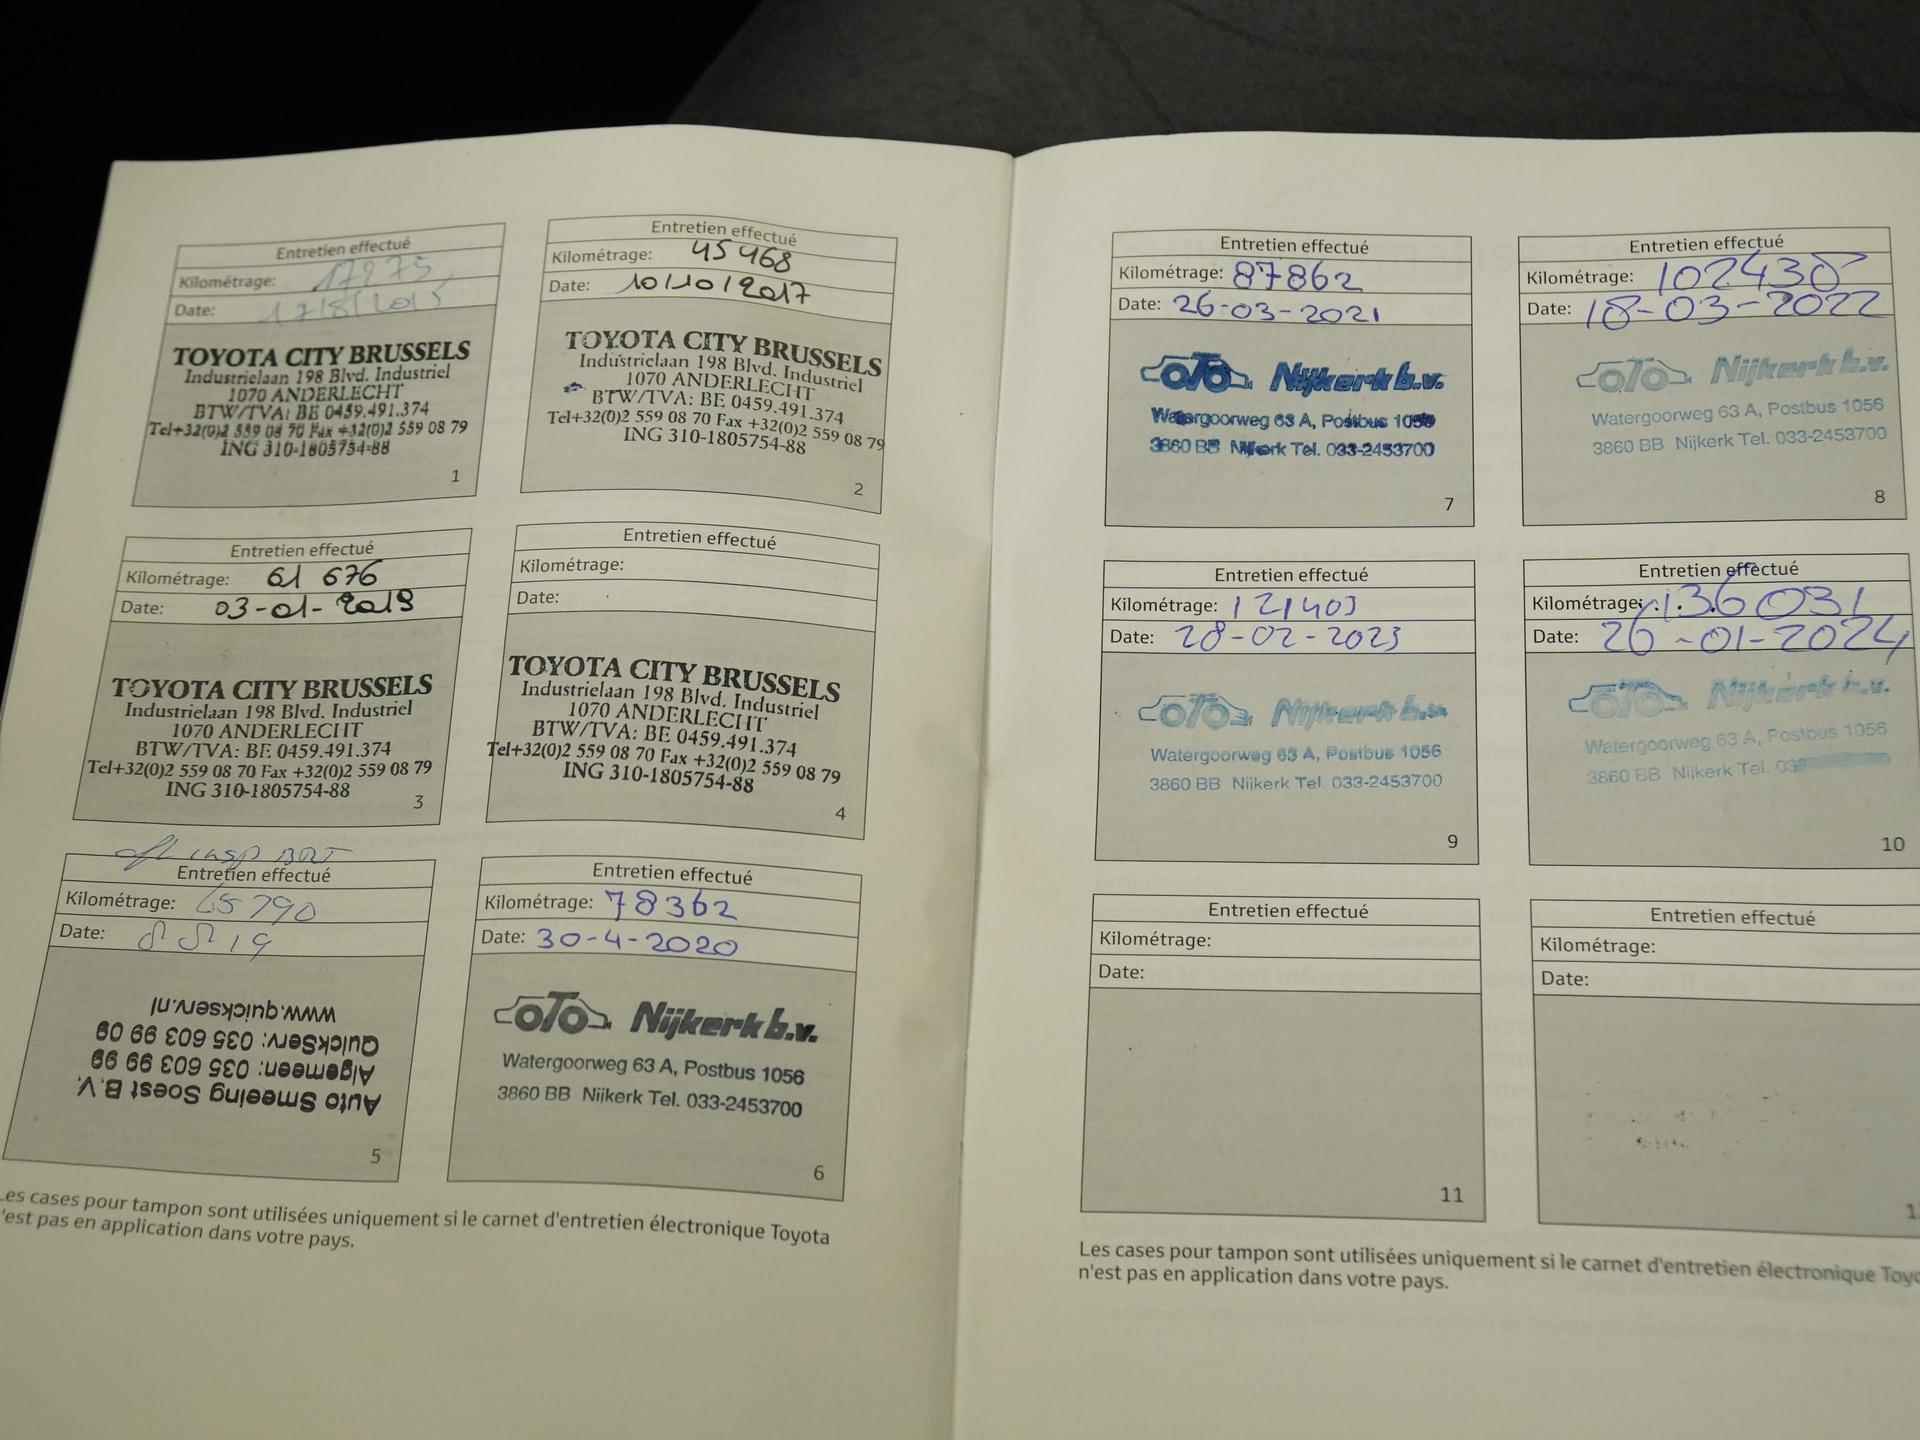 Entretien effectué
Kilométrage: 17275
Date: 17/8/2015
TOYOTA CITY BRUSSELS
Industrielaan 198 Blvd. Industriel
1070 ANDERLECHT
BTW/TVA: BE 0459.491.374
Tel+32(0)2 559 08 70 Fax +32(0)2 559 08 79
ING 310-1805754-88
1
Entretien effectué
Kilométrage: 45 468
Date: 10/10/2017
TOYOTA CITY BRUSSELS
Industrielaan 198 Blvd. Industriel
1070 ANDERLECHT
BTW/TVA: BE 0459.491.374
Tel+32(0)2 559 08 70 Fax +32(0)2 559 08 79
ING 310-1805754-88
2
Entretien effectué
Kilométrage: 61 676
Date: 03-01-2019
TOYOTA CITY BRUSSELS
Industrielaan 198 Blvd. Industriel
1070 ANDERLECHT
BTW/TVA: BE 0459.491.374
Tel+32(0)2 559 08 70 Fax +32(0)2 559 08 79
ING 310-1805754-88
3
Entretien effectué
Kilométrage:
Date:
TOYOTA CITY BRUSSELS
Industrielaan 198 Blvd. Industriel
1070 ANDERLECHT
BTW/TVA: BE 0459.491.374
Tel+32(0)2 559 08 70 Fax +32(0)2 559 08 79
ING 310-1805754-88
4
afl insp BRT
Entretien effectué
Kilométrage: 65790
Date: 8 5 19
Auto Smeeing Soest B.V.
Algemeen: 035 603 99 99
QuickServ: 035 603 99 09
www.quickserv.nl
5
Entretien effectué
Kilométrage: 78362
Date: 30-4-2020
OTO Nijkerk b.v.
Watergoorweg 63 A, Postbus 1056
3860 BB Nijkerk Tel. 033-2453700
6
Les cases pour tampon sont utilisées uniquement si le carnet d'entretien électronique Toyota
n'est pas en application dans votre pays.
Entretien effectué
Kilométrage: 87862
Date: 26-03-2021
OTO Nijkerk b.v.
Watergoorweg 63 A, Postbus 1056
3860 BB Nijkerk Tel. 033-2453700
7
Entretien effectué
Kilométrage: 102430
Date: 18-03-2022
OTO Nijkerk b.v.
Watergoorweg 63 A, Postbus 1056
3860 BB Nijkerk Tel. 033-2453700
8
Entretien effectué
Kilométrage: 121403
Date: 28-02-2023
OTO Nijkerk b.v.
Watergoorweg 63 A, Postbus 1056
3860 BB Nijkerk Tel. 033-2453700
9
Entretien effectué
Kilométrage: 136031
Date: 26-01-2024
OTO Nijkerk b.v.
Watergoorweg 63 A, Postbus 1056
3860 BB Nijkerk Tel.
10
Entretien effectué
Kilométrage:
Date:
11
Entretien effectué
Kilométrage:
Date:
Les cases pour tampon sont utilisées uniquement si le carnet d'entretien électronique Toyo
n'est pas en application dans votre pays.